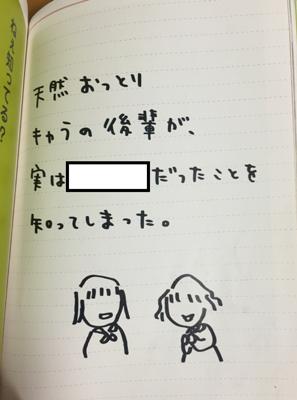 天然おっとり
キャラの後輩が、
実は
だったことを
知ってしまった。